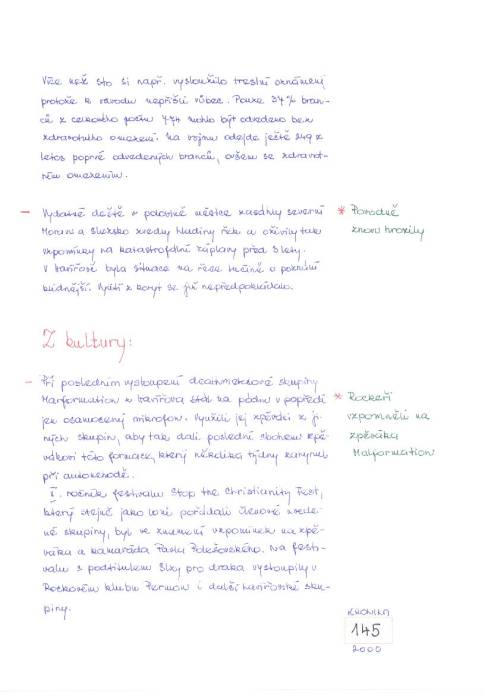 Více než sto si např. vysloužilo trestní oznámení,
protože k odvodu nepřišli vůbec. Pouze 37 % bran-
ců z celkového počtu 474 mohlo být odvedeno bez
zdravotního omezení. Na vojnu odejde ještě 249 z
letos poprvé odvedených branců, ovšem se zdravot-
ním omezením.
– Vydatné deště v polovině měsíce zasáhly severní
Moravu a Slezsko zvedly hladiny řek a oživily tak
vzpomínky na katastrofální záplavy před 3 lety.
V Havířově byla situace na řece Lučině o poznání
klidnější. Vylití z koryt se již nepředpokládalo.
* Povodně
znovu hrozily
Z kultury:
– Při posledním vystoupení deathmetalové skupiny
Malformation z Havířova stál na pódiu v popředí
jen osamocený mikrofon. Využili jej zpěváci z ji-
ných skupin, aby tak dali poslední sbohem zpě-
vákovi této formace, který několik týdny zahynul
při autonehodě.
I. ročník festivalu Stop the Christianity Fest,
který stejně jako loni pořádali členové uvede-
né skupiny, byl ve znamení vzpomínek na zpě-
váka a kamaráda Pavla Poležovského. Na festi-
valu s podtitulem Slzy pro draka vystoupily v
Rockovém klubu Permon i další havířovské sku-
piny.
* Rockeři
vzpomněli na
zpěváka
Malformation
KRONIKA
145
2000